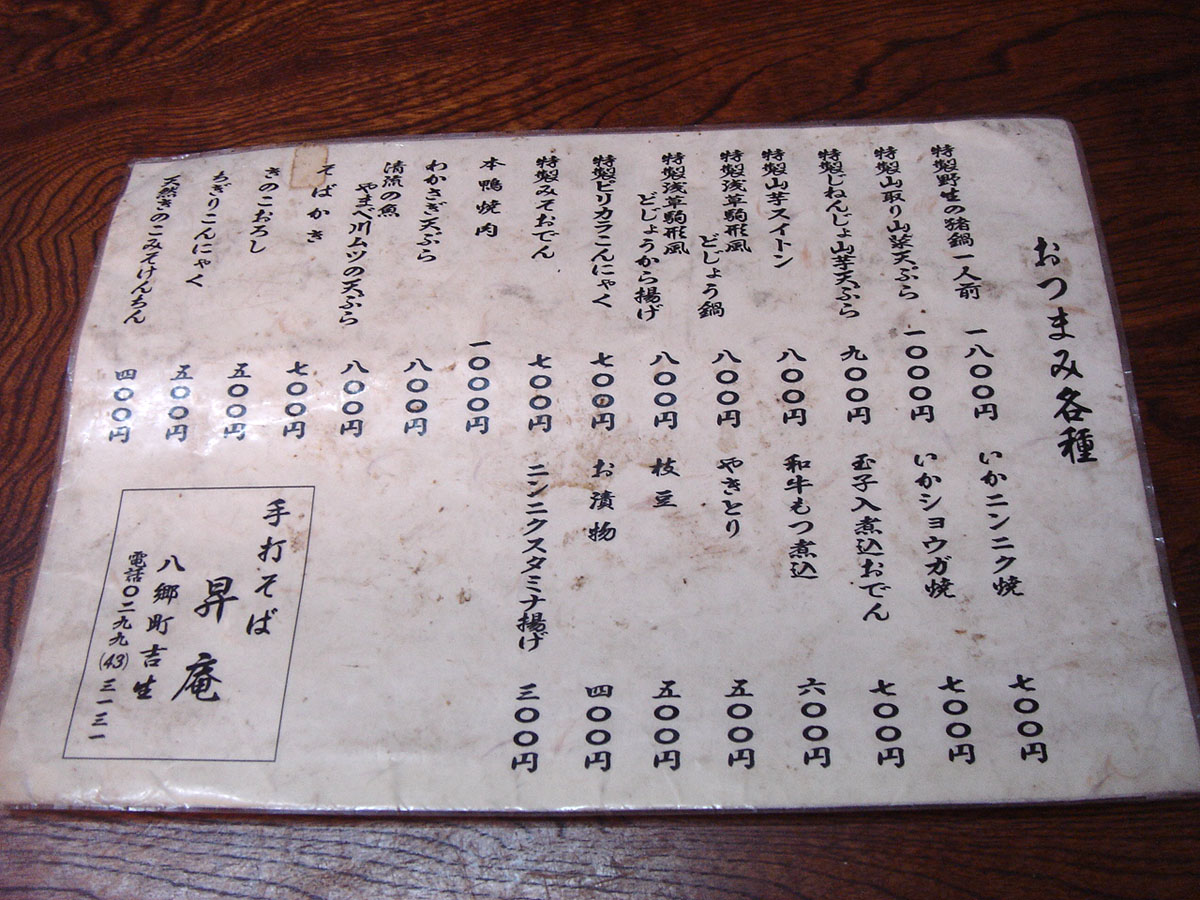 おつまみ各種
特製野生の猪鍋一人前 一八〇〇円
特製山取り山菜天ぷら 一〇〇〇円
特製じねんじょ山芋天ぷら 九〇〇円
特製山芋スイトン 八〇〇円
特製浅草駒形風
どじょう鍋 八〇〇円
特製浅草駒形風
どじょうから揚げ 八〇〇円
特製ピリカラこんにゃく 七〇〇円
特製みそおでん 七〇〇円
本鴨焼肉 一〇〇〇円
わかさぎ天ぷら 八〇〇円
清流の魚
やまべ川ムツの天ぷら 八〇〇円
そばかき 七〇〇円
きのこおろし 五〇〇円
ちぎりこんにゃく 五〇〇円
天然きのこみそけんちん 四〇〇円
いかニンニク焼 七〇〇円
いかショウガ焼 七〇〇円
玉子入煮込おでん 七〇〇円
和牛もつ煮込 六〇〇円
やきとり 五〇〇円
枝豆 五〇〇円
お漬物 四〇〇円
ニンニクスタミナ揚げ 三〇〇円
手打そば
昇庵
八郷町吉生
電話〇二九九(43)三一三一